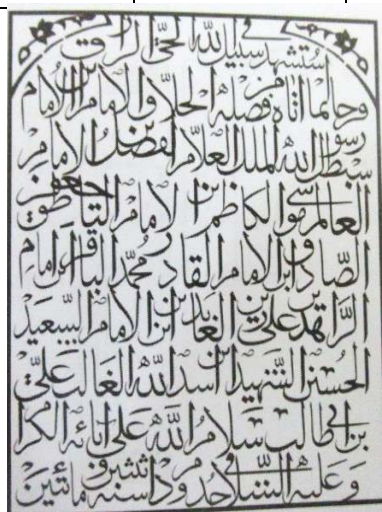 استشهد في سبيل الله الحي الرازق
فرحا لما اتاه من فضله الخلاق الامام بن الامام
سبط رسول الله الملك العلام افضل بن الامام
العالم موسى الكاظم بن الامام الناطق جعفر
الصادق ابن الامام القادر محمد الباقر ابن امام
الزاهد علي زين العابدين ابن الامام السعيد
الحسين الشهيد ابن اسد الله الغالب علي
بن ابي طالب سلام الله على ابائه الكرام
وعليه السلام في حدود سنة مائتين